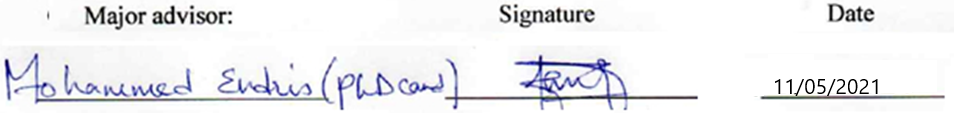 Major advisor: Signature Date
Mohammed Endris (PhD cand) 11/05/2021